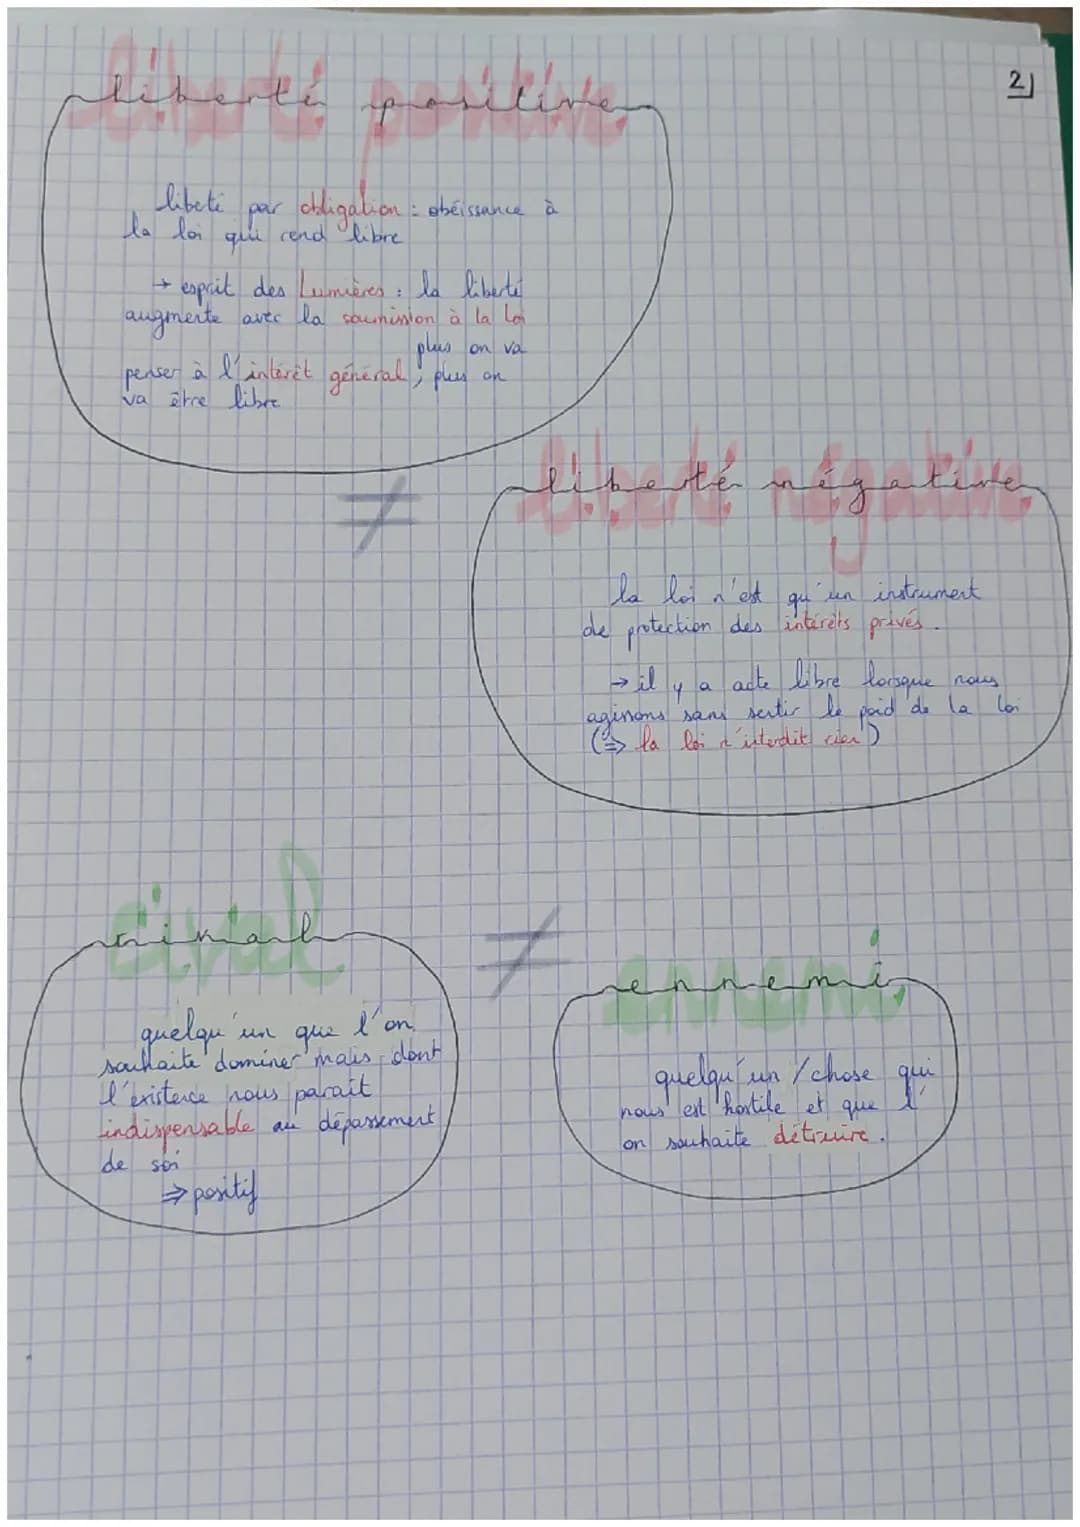 2)
liberté positive
libeté par obligation : obéissance à
la loi qui rend libre
→ esprit des Lumières : la liberté
augmente avec la soumission à la loi
plus on va
penser à l'intérêt général, plus on
va être libre
≠
liberté négative
la loi n'est qu'un instrument
de protection des intérêts privés.
→ il y a acte libre lorsque nous
agissons sans sentir le poid de la loi
(⇒ la loi n'interdit rien)
rival
≠
ennemi
quelqu'un que l'on
souhaite dominer mais dont
l'existence nous parait
indispensable au dépassement
de soi
⇒ positif
quelqu'un / chose qui
nous est hostile et que l'
on souhaite détruire.